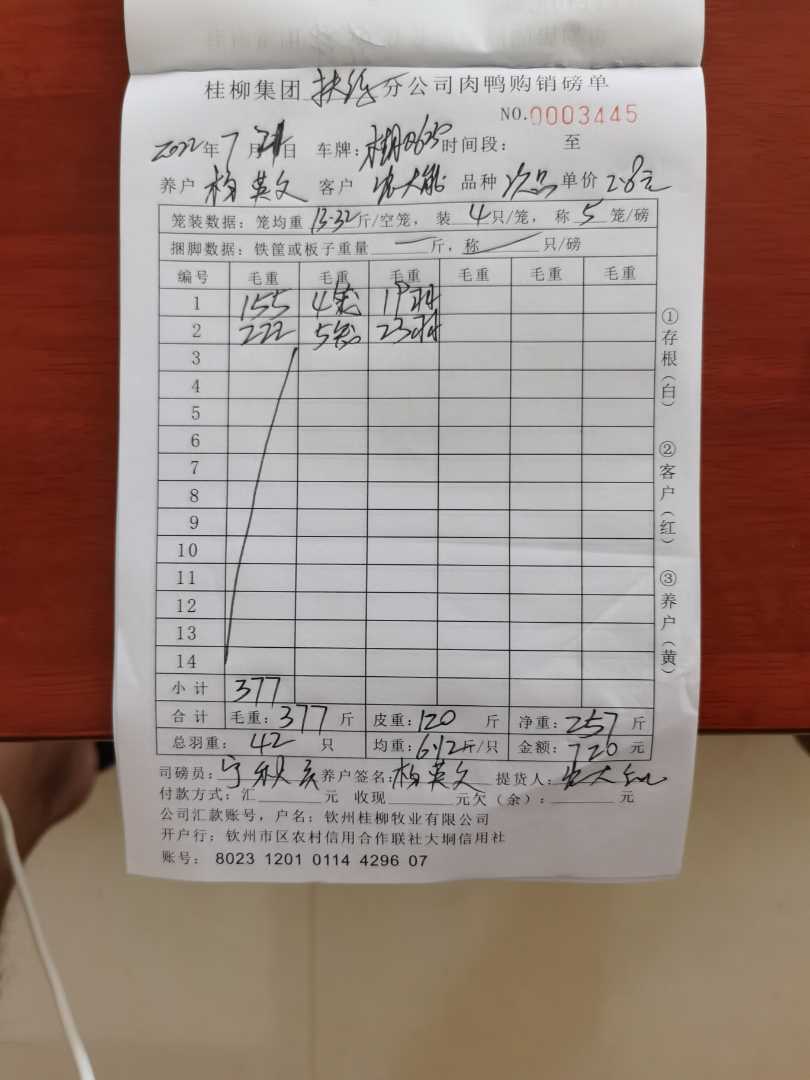 桂柳集团 扶绥 分公司肉鸭购销磅单
NO.0003445
2022年7月21日 车牌: 时间段: 至
养户 杨英文 客户 品种 次品 单价 2.8元
笼装数据:笼均重 13.32 斤/空笼, 装 4 只/笼, 称 5 笼/磅
捆脚数据:铁筐或板子重量 — 斤,称 — 只/磅
编号 毛重 毛重 毛重 毛重 毛重 毛重
1 155 4笼 19羽
2 222 5笼 23羽
3
4
5
6
7
8
9
10
11
12
13
14
小计 377
合计 毛重:377 斤 皮重:120 斤 净重:257 斤
总羽重: 42 只 均重:6.12斤/只 金额:720 元
司磅员: 养户签名:杨英文 提货人:
付款方式:汇 元 收现 元欠(余): 元
公司汇款账号,户名:钦州桂柳牧业有限公司
开户行:钦州市区农村信用合作联社大垌信用社
账号: 8023 1201 0114 4296 07
①存根(白)
②客户(红)
③养户(黄)